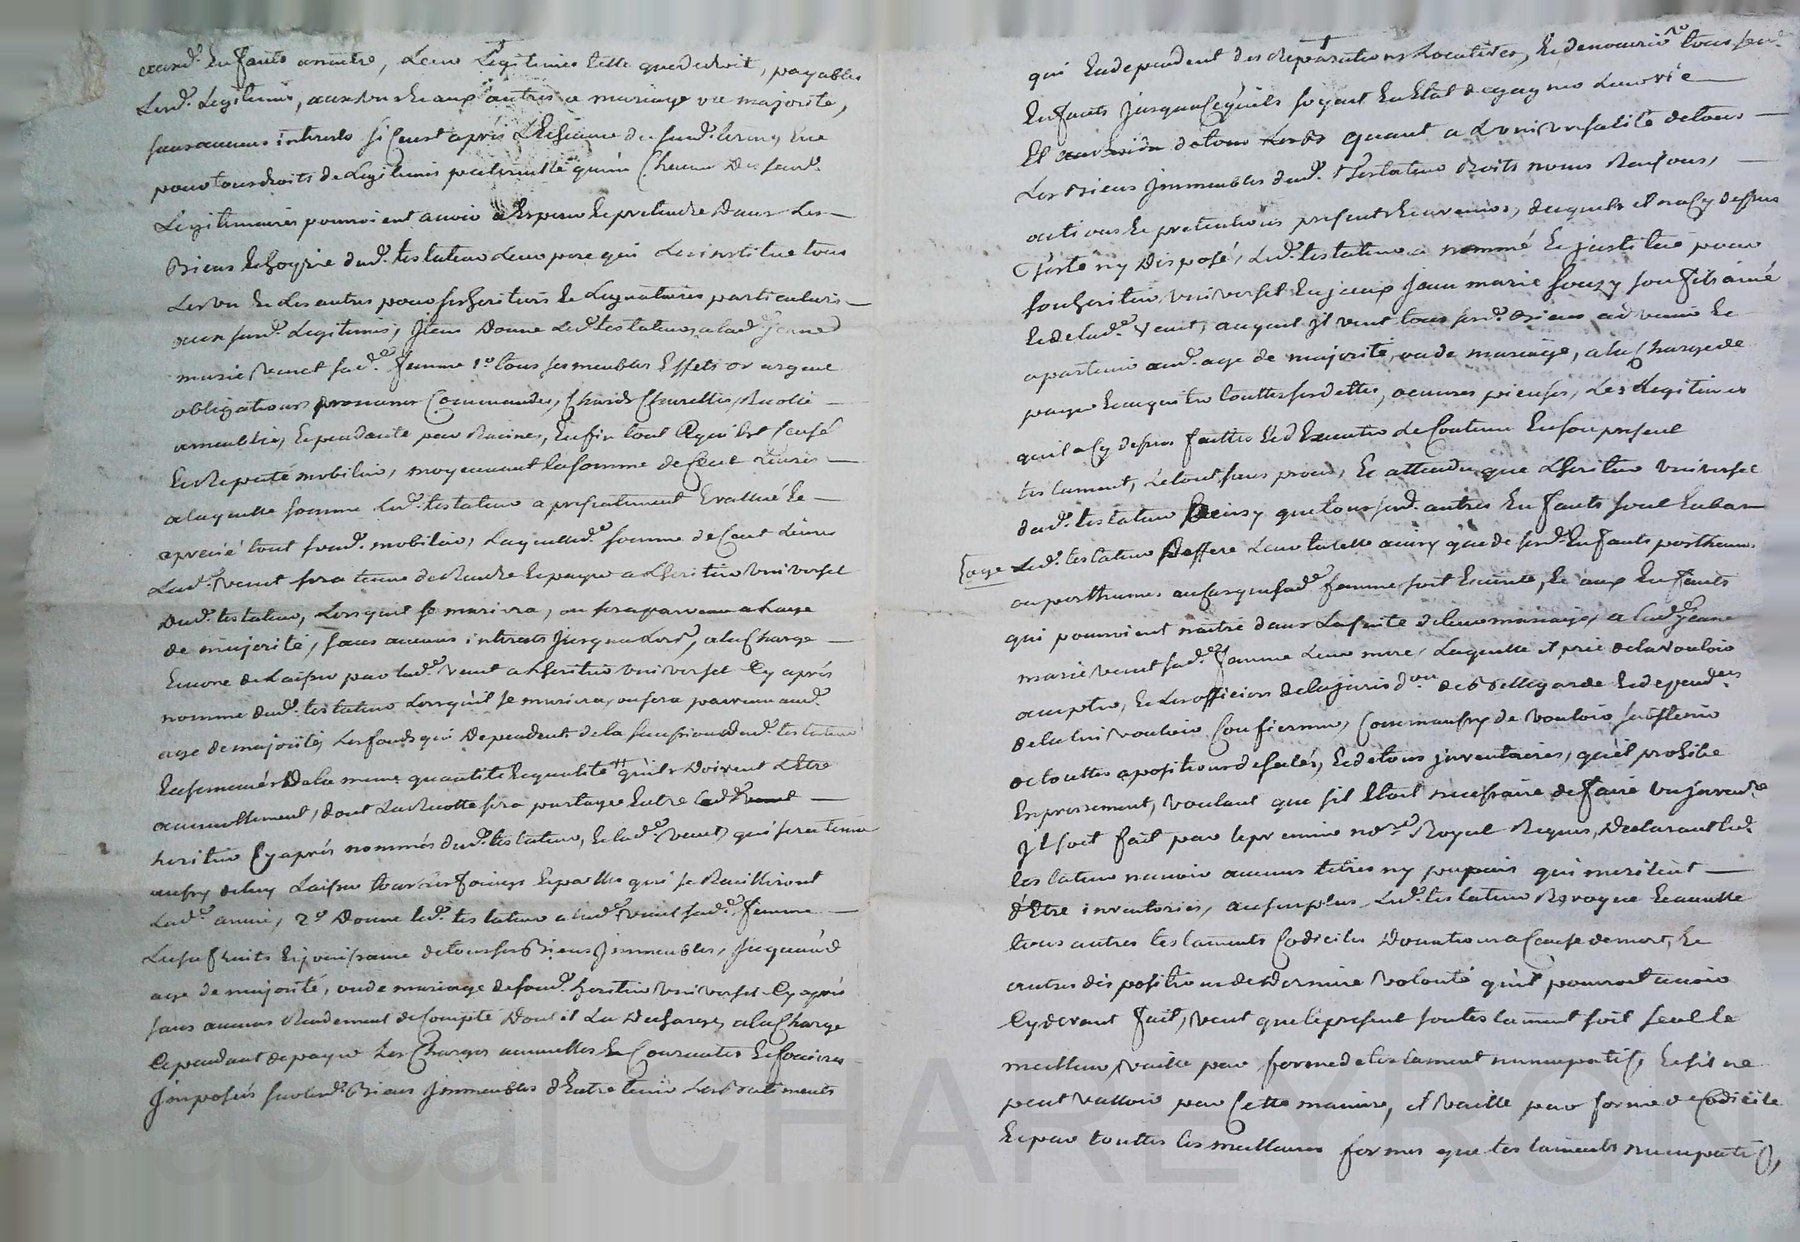 auxd. Enfants anaitre, Leur Legitime telle que de droit, payables
Lesd. Legitimes, aux uns Et aux autres a mariage ou majorité,
sans aucuns interests si Ce n'est après L'Echeance du susd. terme, Et ce
pour tous droits de Legitimes paternelle qu'un Chacun Des susd.
Legitimaires pourroient avoir a Esperer Et pretendre Dans Les
Biens Et hoyrie dud. testateur Leur pere qui Les institue tous
Les uns Et Les autres pour ses heritiers Et Legataires particuliers
aux susd. Legitimes, Item Donne Led. testateur a lad. Jeanne
marie Venet sad.e femme 1.o tous ses meubles Effets or argent
obligations promesses Commandes, Chards Charettes, Recolte
ameublie, Et pendante par Racines, Enfin tout Ce qui Est Censé
Et Reputé mobilier, moyennant la somme de Cent Livres
a laquelle somme Led. testateur a presentement Evallué Et
aprecié tout sond. mobilier, Laquelled. somme de Cent Livres
Lad.e Venet sera tenue de Rendre Et payer a L'heritier universel
Dud. testateur, Lorsqu'il se mariera, ou sera parvenu a L'age
de majorité, sans aucuns interests jusqu'a Lors, a la Charge
Encore de Laisser par Lad.e Venet a L'heritier universel Cy après
nommé dud. testateur Lorsqu'il se mariera, ou sera parvenu aud.
age de majorité, Les fonds qui Dependent de la succession dud. testateur
Ensemencés De la meme quantité Et qualité qu'ils Doivent L'Etre
annuellement, dont La Recolte sera partagée Entre
heritier Cy après nommés dud. testateur, Et lad.e Venet, qui sera tenue
aussy de luy Laisser tous Les foings Et pailles qui se Recuilliront
Lad.e année, 2.o Donne led. testateur a lad.e Venet sad.e femme
Lusufruits Et jouissance de tous ses Biens Immeubles, jusqu'aud.
age de majorité, ou de mariage de sond. heritier universel Cy après
sans aucuns Rendement de Compte Dont il La Decharge, a la Charge
Cependant de payer Les Charges annuelles Et Courantes Et foncieres
Imposés sur lesd. Biens Immeubles d'Entretenir Les Batiments
qui En dependent des Reparations Locatives, Et de nourrir tous sesd.
Enfants jusqu'a Ce qu'ils soyent En Etat de gagner Leur vie
Et quant a L'universalité de tous
Les Biens Immeubles dud. Testateur Droits noms Raisons,
actions Et pretentions presents Et avenirs, desquels il n'a Cy dessus
Testé ny Disposé, Led. testateur a nommé Et institué pour
son heritier universel Jean marie son fils ainé
Et de lad.e Venet, auquel Il veut tous sesd. Biens advenir Et
apartenir aud. age de majorité, ou de mariage, a la Charge de
payer Et aquitter touttes ses dettes, oeuvres pieuses, Les Legitimes
qu'il a Cy dessus faittes Et D'Executer le Contenu En son present
testament, Le tout sans procès, Et attendu que L'heritier universel
dud. testateur que tous sesd. autres Enfants sont En bas
age Led. testateur Deffere Leur tutelle aussy que de sesd. Enfants posthumes
ou posthumes au Cas que sad.e femme soit Enceinte, Et aux Enfants
qui pourroient naitre dans La suite de leur mariage, a lad.e Jeanne
marie Venet sad.e femme Leur mere, Laquelle il prie de la vouloir
accepter, Et Les officiers de la jurisd.on de Bellegarde Et dependces
de la lui vouloir Confirmer, Comm'aussy de vouloir s'abstenir
de touttes apositions de scelés, Et de tous inventaires, qu'il prohibe
Expressement, voulant que s'il Etoit necessaire de faire un inventre
Il soit fait par le premier nore Royal Requis, Declarant led.
testateur n'avoir aucuns titres ny papiers qui meritent
d'Etre inventoriés, au surplus Led. testateur Revoque Et annulle
tous autres testaments Codiciles Donations a Cause de mort, Et
autres dispositions de Derniere volonté qu'il pourroit avoir
Cy devant fait, veut que le present son testament soit seul le
meilleur, vaille par forme de testament nuncupatif, Et s'il ne
peut valloir par Cette maniere, il vaille par forme de Codicile
Et par touttes les meilleures formes que testaments nuncupatifs,